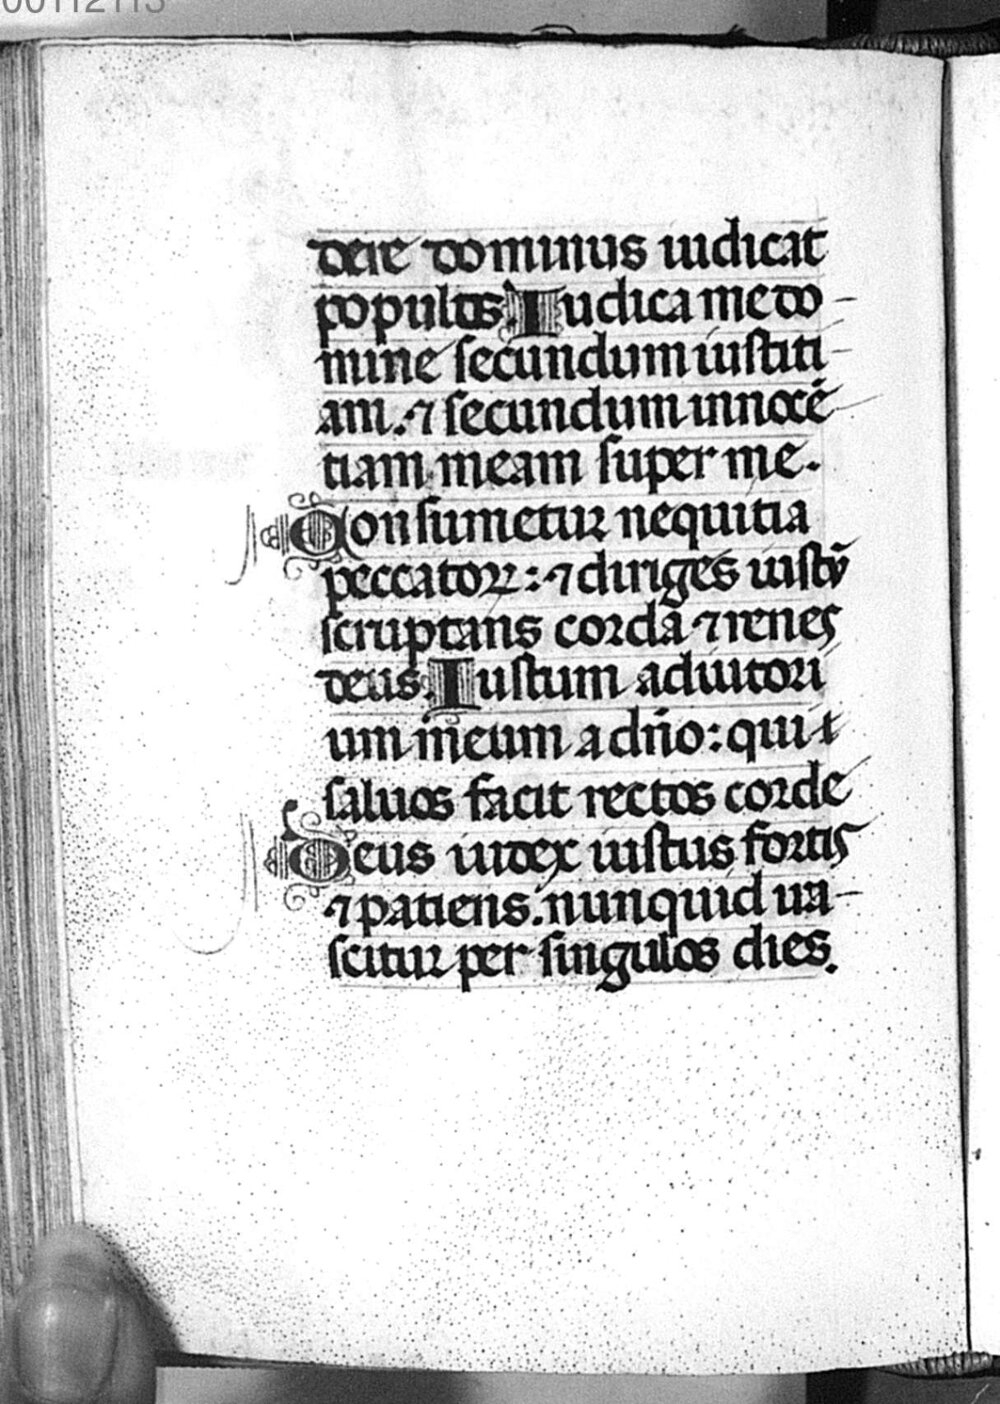 00112113
dere dominus iudicat
populos. Iudica me do-
mine secundum iustiti-
am. ⁊ secundum innocē
tiam meam super me.
Consumetur nequitia
peccatoꝝ: ⁊ diriges iustū
scruptans cordā ⁊ renes
deus. Iustum adiutori
um meum a dño: qui
saluos facit rectos corde
Deus iudex iustus fortis
⁊ patiens. nunquid ira-
scitur per singulos dies.